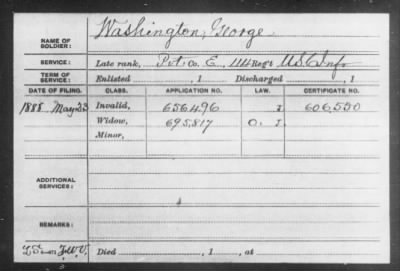 NAME OF SOLDIER: Washington, George
SERVICE: Late rank, Pvt. Co. E, 114 Reg't U.S.C. Inf.
TERM OF SERVICE: Enlisted , 1 Discharged , 1
DATE OF FILING. CLASS. APPLICATION NO. LAW. CERTIFICATE NO.
1888 May 23 Invalid, 656496 606530
Widow, 695,817
Minor,
ADDITIONAL SERVICES:
REMARKS:
Died , 1 , at